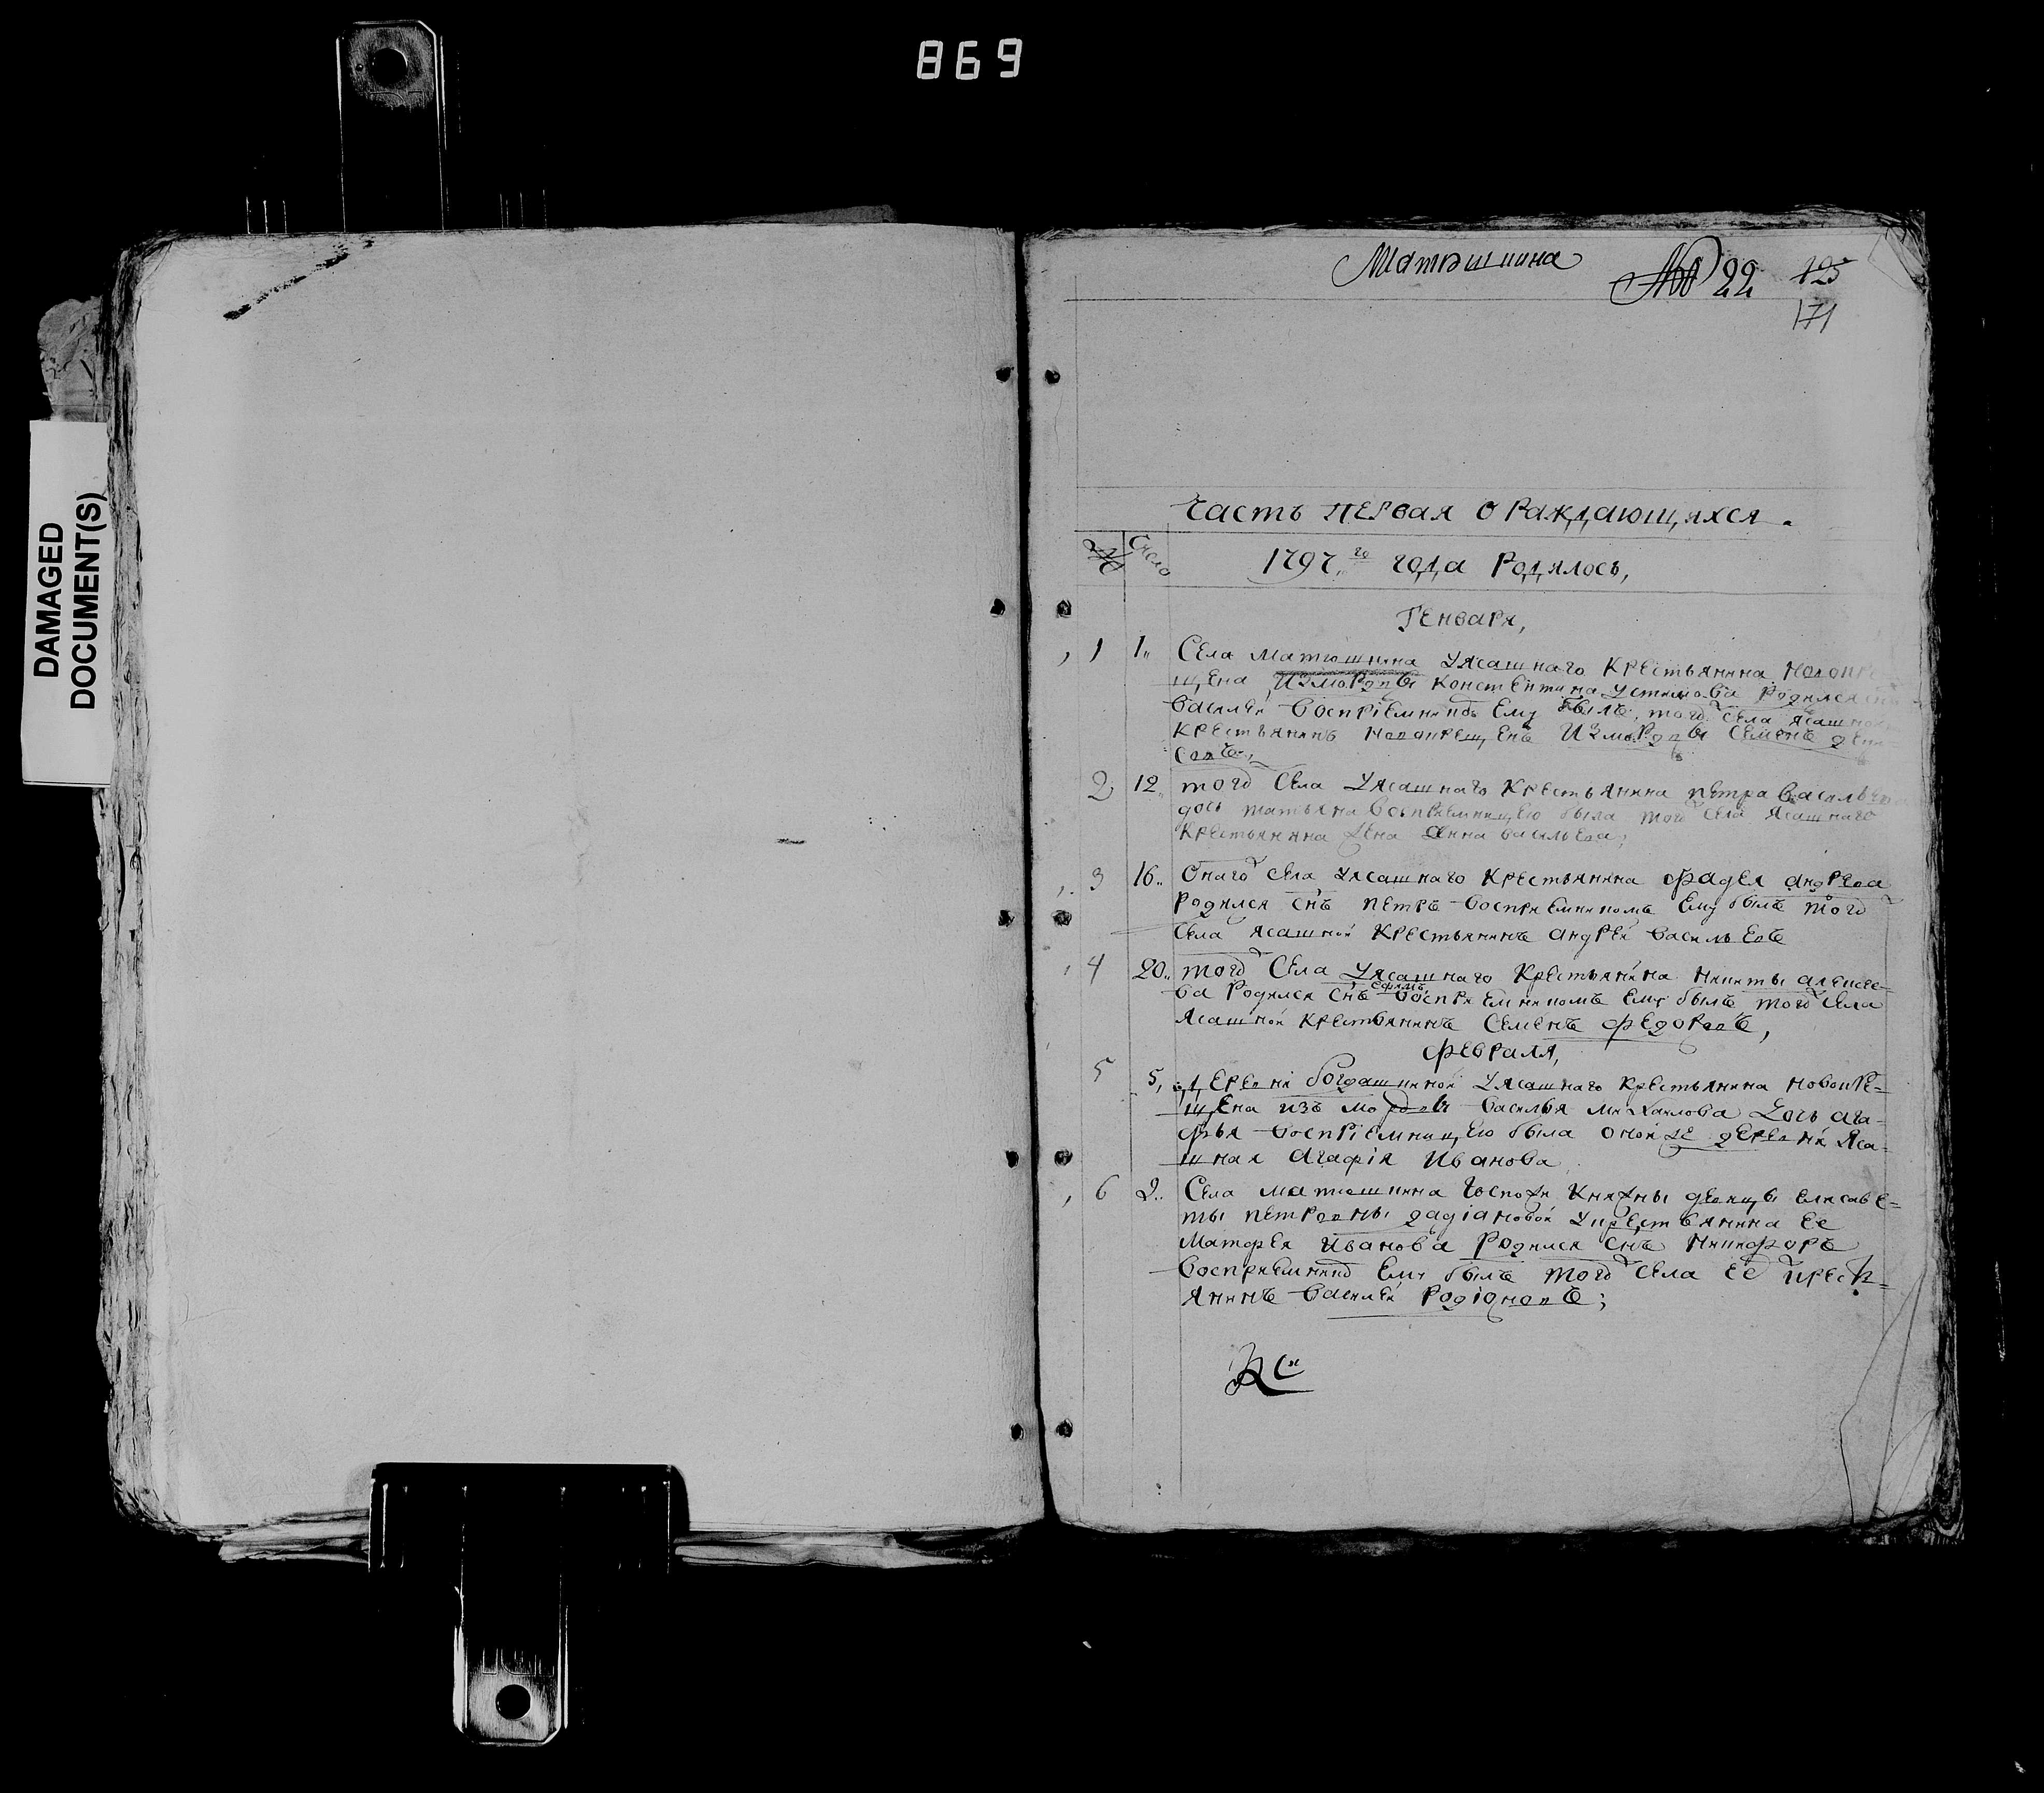 869
DAMAGED
DOCUMENT(S)
Матюшкина
№ 22 125
171
Часть первая о раждающихся.
№ Число
1797,, го года родилось,
Генваря,
1 1,, Села матюшкина уясашнаго крестьянина новокре
щена измордвы констентина устимова родился снъ
василей восприемникъ ему былъ того села ясашной
крестьянинъ новокрещенъ измордвы семенъ дени
совъ,
2 12,, того села уясашнаго крестьянина петра васильева
дочь татьяна восприемницею была того села ясашнаго
крестьянина жена анна васильева;
3 16,, Онаго села уясашнаго крестьянина фадея андреева
родился снъ петръ восприемникомъ ему былъ того
села ясашной крестьянинъ андрей васильевъ
4 20,, того села уясашнаго крестьянина никиты алексее-
ва родился снъ ефимъ восприемникомъ ему былъ того села
ясашной крестьянинъ семенъ федоровъ,
февраля,
5 5, деревни богдашкиной уясашнаго крестьянина новокре-
щена изъ мордвы василья михайлова дочь ага-
фья восприемницею была оной же деревни яса-
шная агафия иванова
6 9,, Села матюшкина госпожи княжны девицы елисаве-
ты петровны дадиановой укрестьянина ее
матфея иванова родился снъ никифоръ
восприемникъ ему былъ того села ее кресть-
янинъ василей родионовъ;